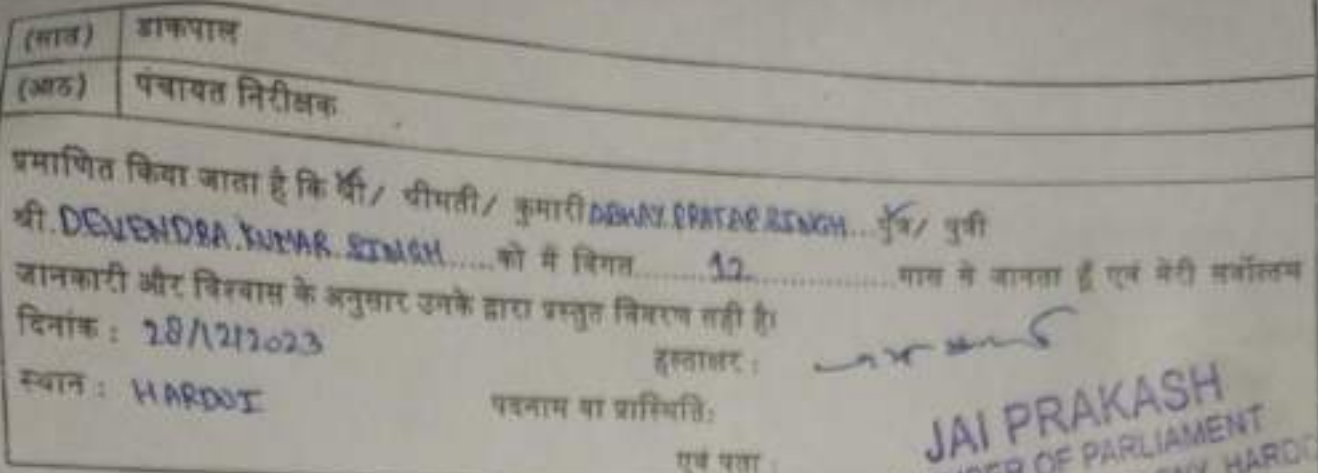 (सात) डाकपाल
(आठ) पंचायत निरीक्षक
प्रमाणित किया जाता है कि श्री/ श्रीमती/ कुमारी ABHAY PRATAP SINGH... पुत्र/ पुत्री
श्री. DEVENDRA KUMAR SINGH......को मैं विगत.........12..................मास से जानता हूँ एवं मेरी सर्वोत्तम
जानकारी और विश्वास के अनुसार उनके द्वारा प्रस्तुत विवरण सही है।
दिनांक : 28/12/2023
हस्ताक्षर :
स्थान : HARDOI
पदनाम या प्रास्थिति:
JAI PRAKASH
OF PARLIAMENT
एवं पता :